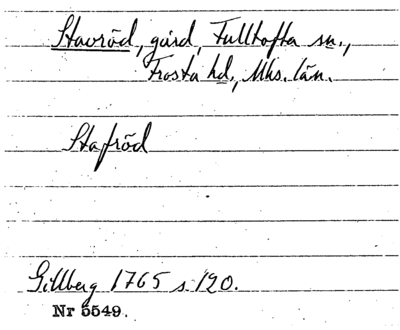 Stavröd, gård, Fulltofta sn.,
Frosta hd., Mhs. län.
Stafröd
Gillberg 1765 s. 120.
Nr 5549.